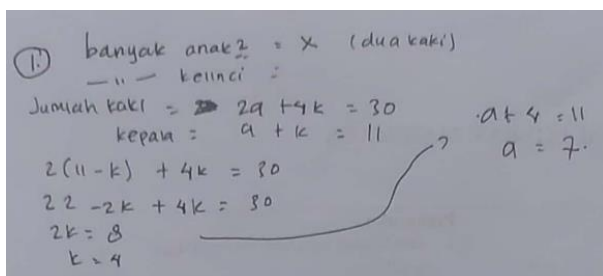 1.
banyak anak2 = x (dua kaki)
— " — kelinci :
Jumlah kaki = 2a + 4k = 30
kepala : a + k = 11
2(11 - k) + 4k = 30
22 - 2k + 4k = 30
2k = 8
k = 4
a + 4 = 11
a = 7.